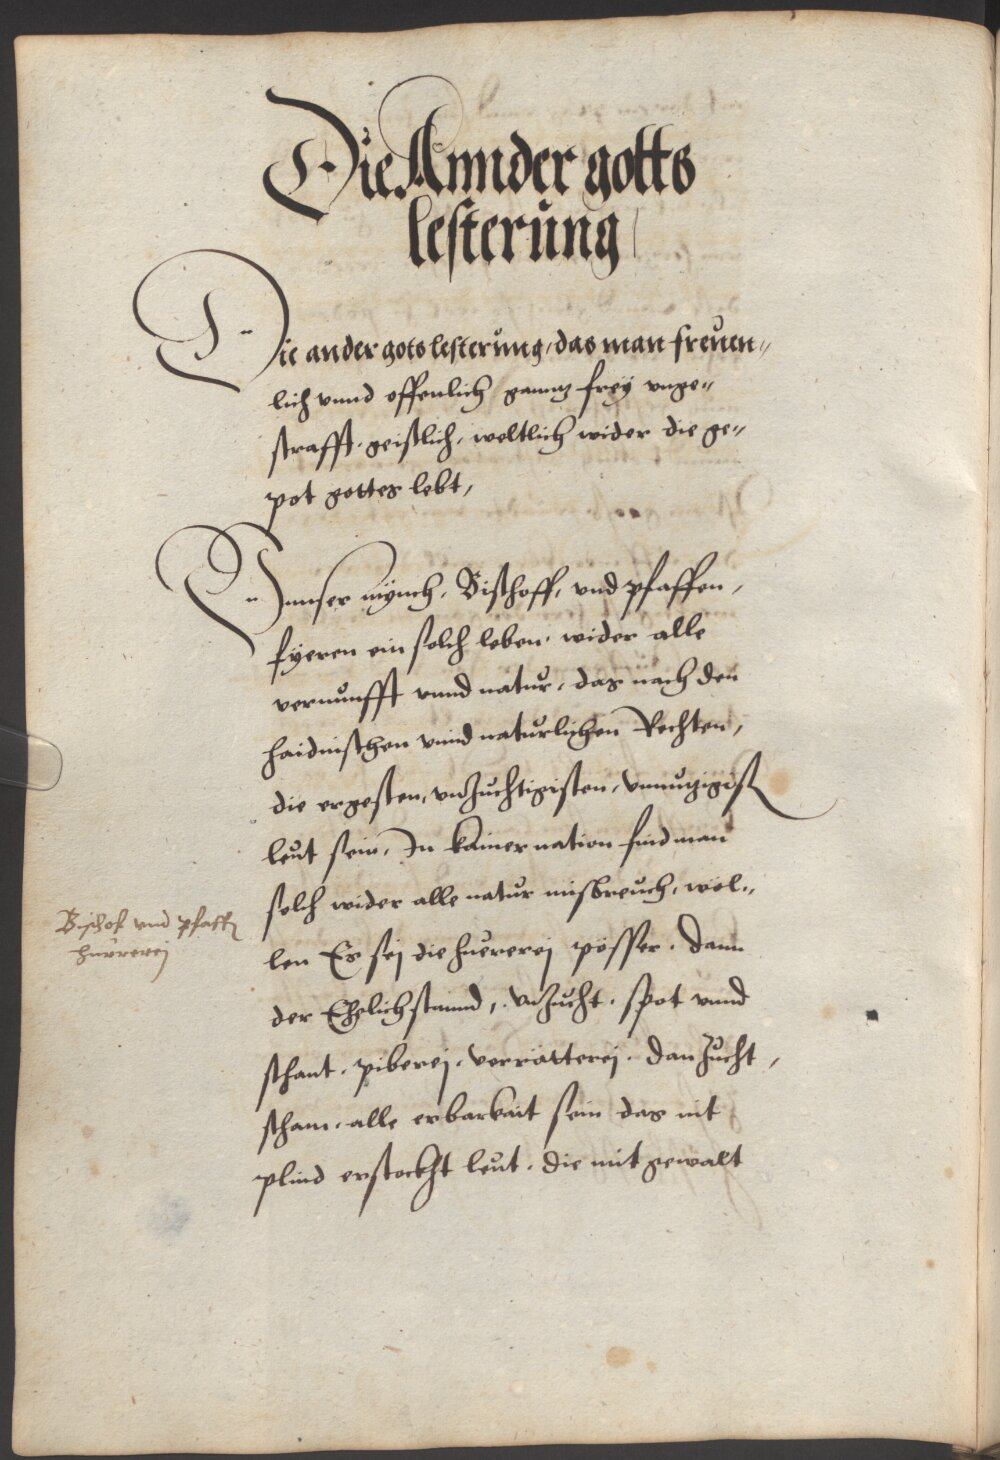 Die Annder gotts
lesterung
Die ander gots lesterung, das man freuen„
lich vnnd offenlich gannz frey vnge„
strafft, geistlich, weltlich wider die ge„
pot gottes lebt,
Vnnser mÿnch, Bischoff, vnd pfaffen,
fÿeren ein solch leben, wider alle
vernunfft vnnd natur, das nach den
haidnischen vnnd naturlichen Rechten,
die ergesten, vnzuchtigisten, vnnuzigist
leut sein, In kainer nation find man
solch wider alle natur misbreuch, wöl„
len Es sej die huererej pösser, dann
der Ehelich stannd, vnzucht, spot vnnd
schant, piberej, verrätterej, dan zucht,
scham, alle erbarkait sein das nit
plind erstockht leut, die mit gewalt
Bischof vnd pfaff
hurrerej